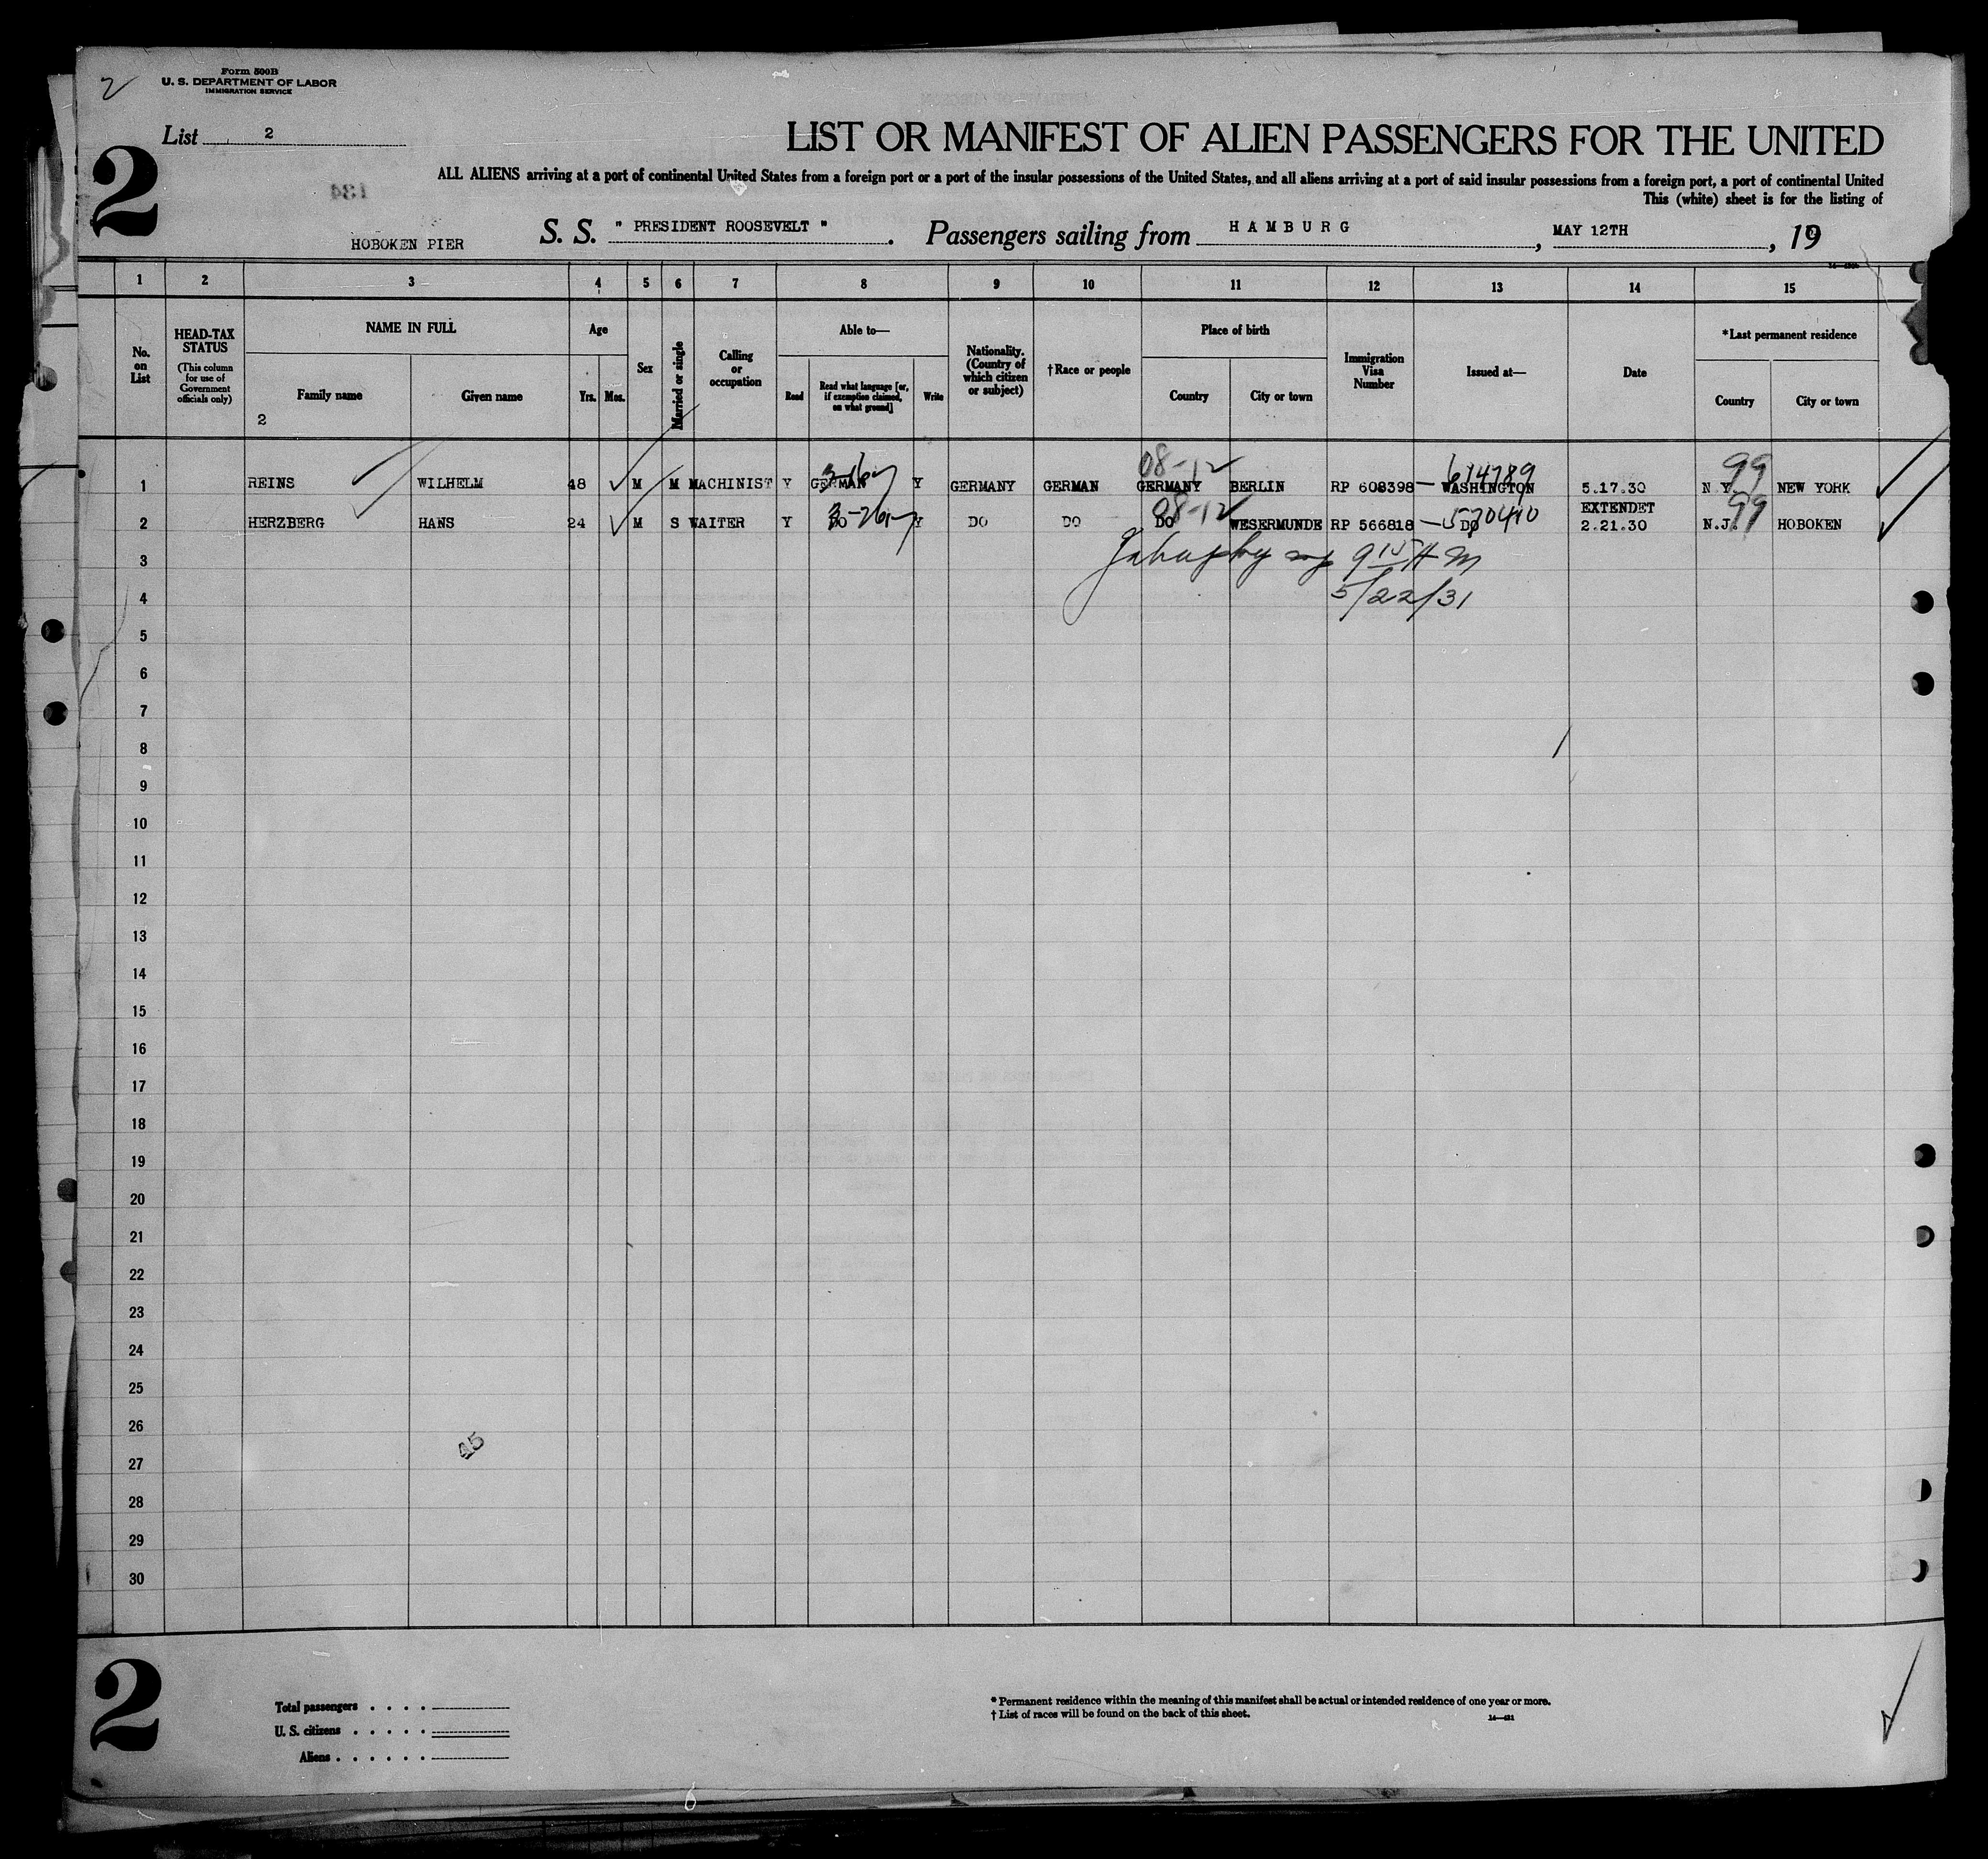 2
Form 500B
U. S. DEPARTMENT OF LABOR
IMMIGRATION SERVICE
List 2
2
LIST OR MANIFEST OF ALIEN PASSENGERS FOR THE UNITED
ALL ALIENS arriving at a port of continental United States from a foreign port or a port of the insular possessions of the United States, and all aliens arriving at a port of said insular possessions from a foreign port, a port of continental United
This (white) sheet is for the listing of
134
HOBOKEN PIER S. S. " PRESIDENT ROOSEVELT ". Passengers sailing from HAMBURG, MAY 12TH, 19
1 2 3 4 5 6 7 8 9 10 11 12 13 14 15
No. on List
HEAD-TAX STATUS (This column for use of Government officials only)
NAME IN FULL
Family name
Given name
2
Age
Yrs. Mos.
Sex
Married or single
Calling or occupation
Able to—
Read
Read what language [or, if exemption claimed, on what ground]
Write
Nationality. (Country of which citizen or subject)
†Race or people
Place of birth
Country
City or town
Immigration Visa Number
Issued at—
Date
*Last permanent residence
Country
City or town
08-12 614789 99
1 REINS WILHELM 48 M M MACHINIST Y GERMAN Y GERMANY GERMAN GERMANY BERLIN RP 608398 — WASHINGTON 5.17.30 N.Y. NEW YORK
EXTENDET
08-12 570410 99
2 HERZBERG HANS 24 M S WAITER Y DO Y DO DO DO WESERMUNDE RP 566818 — DO 2.21.30 N.J. HOBOKEN
3 9 15 A M
4 5/22/31
5
6
7
8
9
10
11
12
13
14
15
16
17
18
19
20
21
22
23
24
25
26
45
27
28
29
30
2
Total passengers
U. S. citizens
Aliens
* Permanent residence within the meaning of this manifest shall be actual or intended residence of one year or more.
† List of races will be found on the back of this sheet.
6